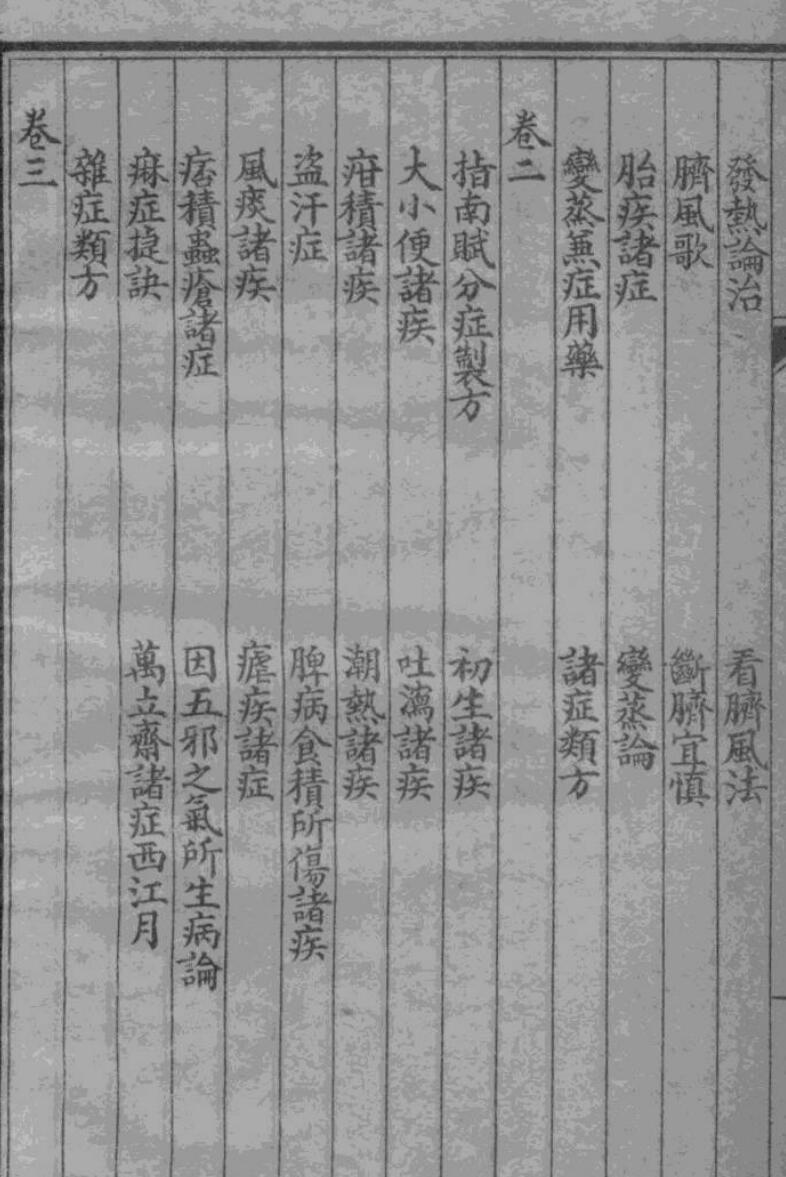 發熱論治　看臍風法
臍風歌　斷臍宜慎
胎疾諸症　變蒸論
變蒸兼症用藥　諸症類方
卷二
指南賦分症製方　初生諸疾
大小便諸疾　吐瀉諸疾
疳積諸疾　潮熱諸疾
盜汗症　脾病食積所傷諸疾
風痰諸疾　瘧疾諸症
痞積蟲瘡諸症　因五邪之氣所生病論
痳症捷訣　萬立齋諸症西江月
雜症類方
卷三